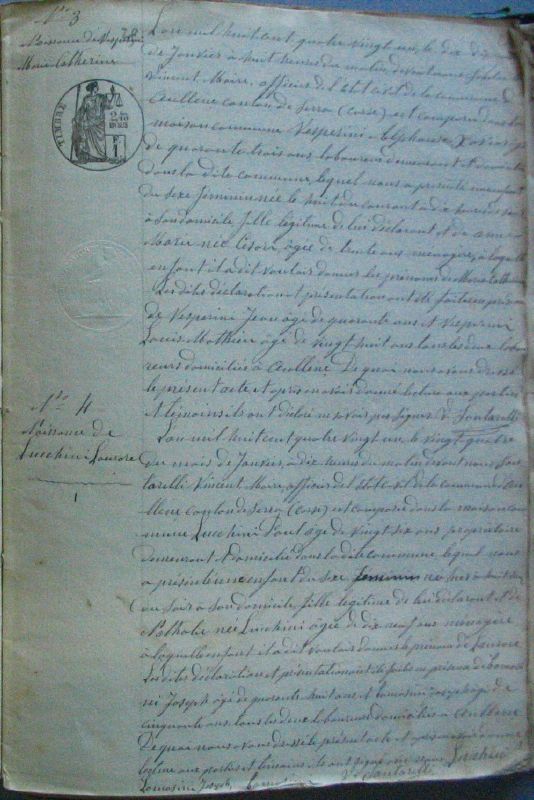 No 3
Naissance de Vesperini
Marie Catherine
TIMBRE
25
F 1
L'an mil huit cent quatre vingt un, le dix
de Janvier à huit heures du matin devant nous Santarelli
Vincent Maire, officier de l'état civil de la commune d'
Aullene canton de Serra (Corse) est comparu dans la
maison commune Vesperini Alphonse
de quarante trois ans laboureur demeurant et domicilié
dans la dite commune, lequel nous a présenté un enfant
du sexe féminin née le huit du courant à dix heures du
à son domicile fille légitime de lui déclarant et de
Marie née agée de trente ans ménagère, à laquelle
enfant il a dit vouloir donner les prénoms de Marie Catherine
Les dites déclaration et présentation ont été faites en présence
de Vesperini Jean âgé de quarante ans et Vesperini
Louis Mathieu âgé de vingt huit ans tous les deux labou
reurs domiciliés à Aullene. De quoi nous avons dressé
le présent acte et après en avoir donné lecture aux parties
et témoins ils ont déclaré ne savoir pas signer. V. Santarelli
No 4
Naissance de
Lucchini Laurore
1
L'an mil huit cent quatre vingt un le vingt quatre
du mois de Janvier, à dix heures du matin devant nous San
tarelli Vincent Maire, officier de l'état civil de la commune d'Au
llene canton de Serra (Corse) est comparu dans la maison com
mune Lucchini Paul âgé de vingt six ans propriétaire
demeurant et domicilié dans la dite commune lequel nous
a présenté un enfant du sexe féminin né hier à huit heures
du soir à son domicile fille légitime de lui déclarant et de
Nathalie née Lucchini âgée de dix neuf ans ménagère
à laquelle enfant il a dit vouloir donner le prénom de Laurore
Les dites déclaration et présentation ont été faites en présence de
ni Joseph âgé de quarante huit ans et Lanosini Joseph âgé de
cinquante ans tous les deux laboureurs domiciliés à Aullene
De quoi nous avons dressé le présent acte et après en avoir donné
lecture aux parties et témoins ils ont signé avec nous Lucchini
Joseph, V. Santarelli